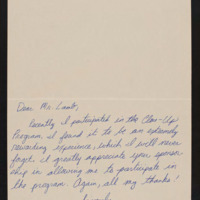 Dear Mr. Lamb,
Recently I participated in the Close-Up
Program. I found it to be an extremely
rewarding experience, which I will never
forget. I greatly appreciate your sponsor-
ship in allowing me to participate in
the program. Again, all my thanks!